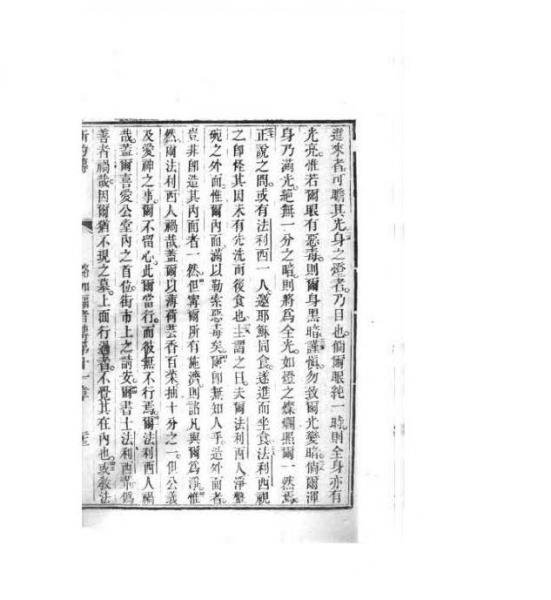 進來者可瞻其光身之燈者乃目也倘爾眼純一曉則全身亦有
光亮惟若爾眼有惡毒則爾身黑暗謹愼勿致爾光變暗倘爾渾
身乃滿光絕無一分之暗則將為全光如燈之燦爛照爾一然焉
正說之間或有法利西一人邀耶穌同食遂進而坐食法利西視
之卽怪其因未有先洗而後食也主謂之曰夫爾法利西人淨盤
碗之外面惟爾內面滿以勒索惡毒矣爾卽無知人乎造外面者
豈非卽造其內面者一然但寧爾所有施濟則諸凡與爾為淨惟
然爾法利西人禍哉蓋爾以薄荷芸香百菜抽十分之一但公義
及愛神之事爾不留心此爾當行而彼無不行焉爾法利西人禍
哉蓋爾喜愛公堂內之首位街市上之請安爾書士法利西輩偽
善者禍哉因爾猶不現之墓上面行過者不覺其在內也或敎法
路加福音傳第十一章